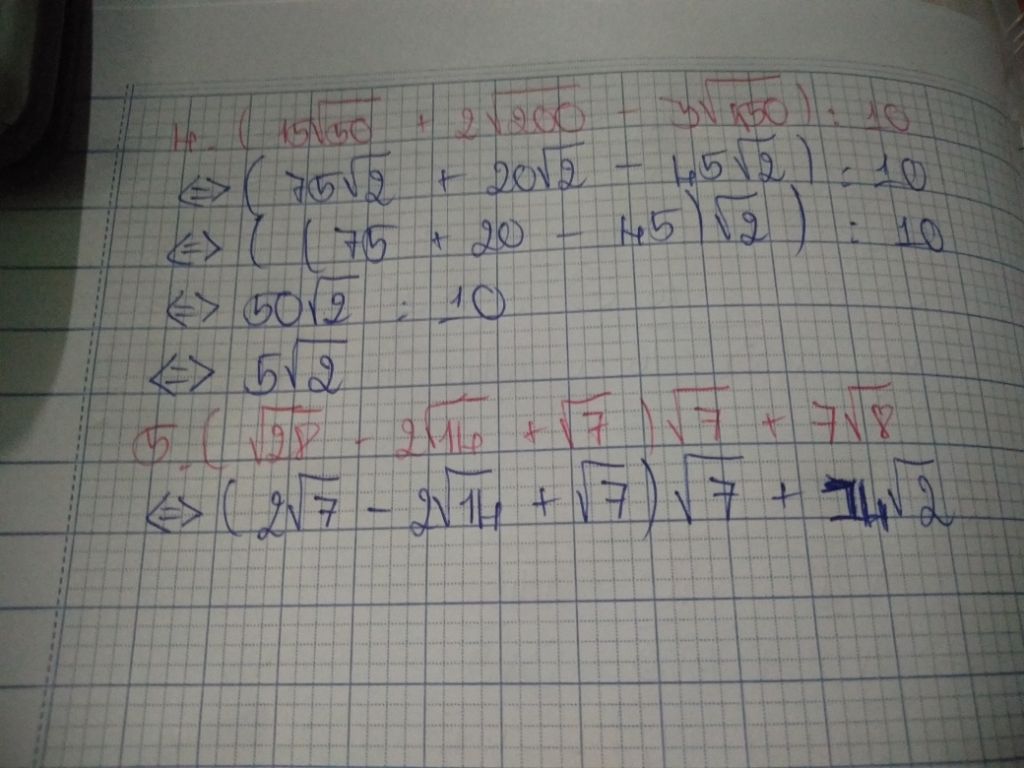 4. ( 15√50 + 2√200 - 3√450 ) : 10
⇔ ( 75√2 + 20√2 - 45√2 ) : 10
⇔ ( ( 75 + 20 - 45 ) √2 ) : 10
⇔ 50√2 : 10
⇔ 5√2
5. ( √28 - 2√14 + √7 ) √7 + 7√8
⇔ ( 2√7 - 2√14 + √7 ) √7 + 14√2